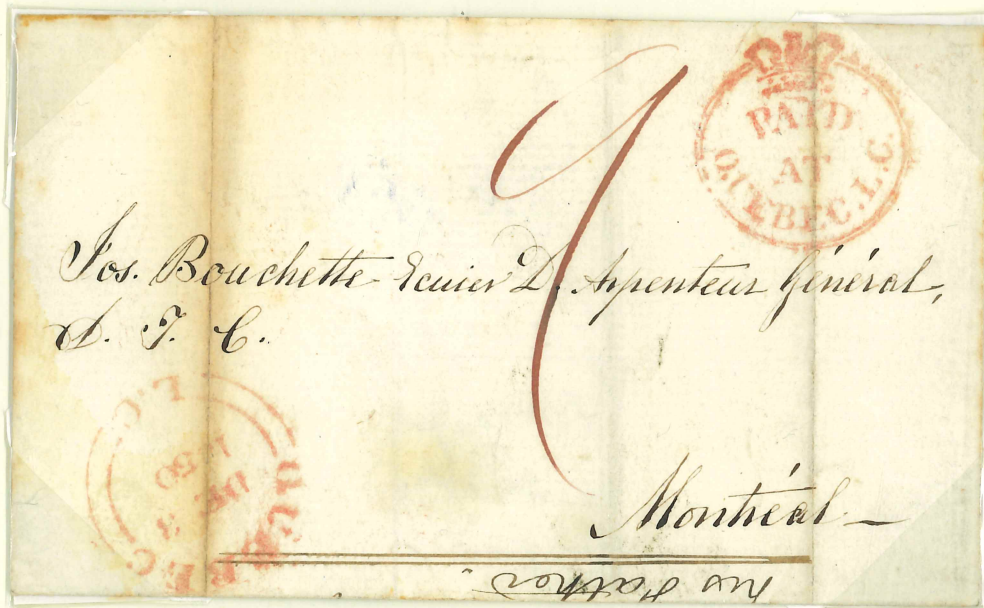 PAID
AT
QUEBEC. L.C.
9
Jos. Bouchette Ecuier D. Arpenteur Général,
&. T. C.
Montréal —
QUEBEC L.C.
DE 3
1850